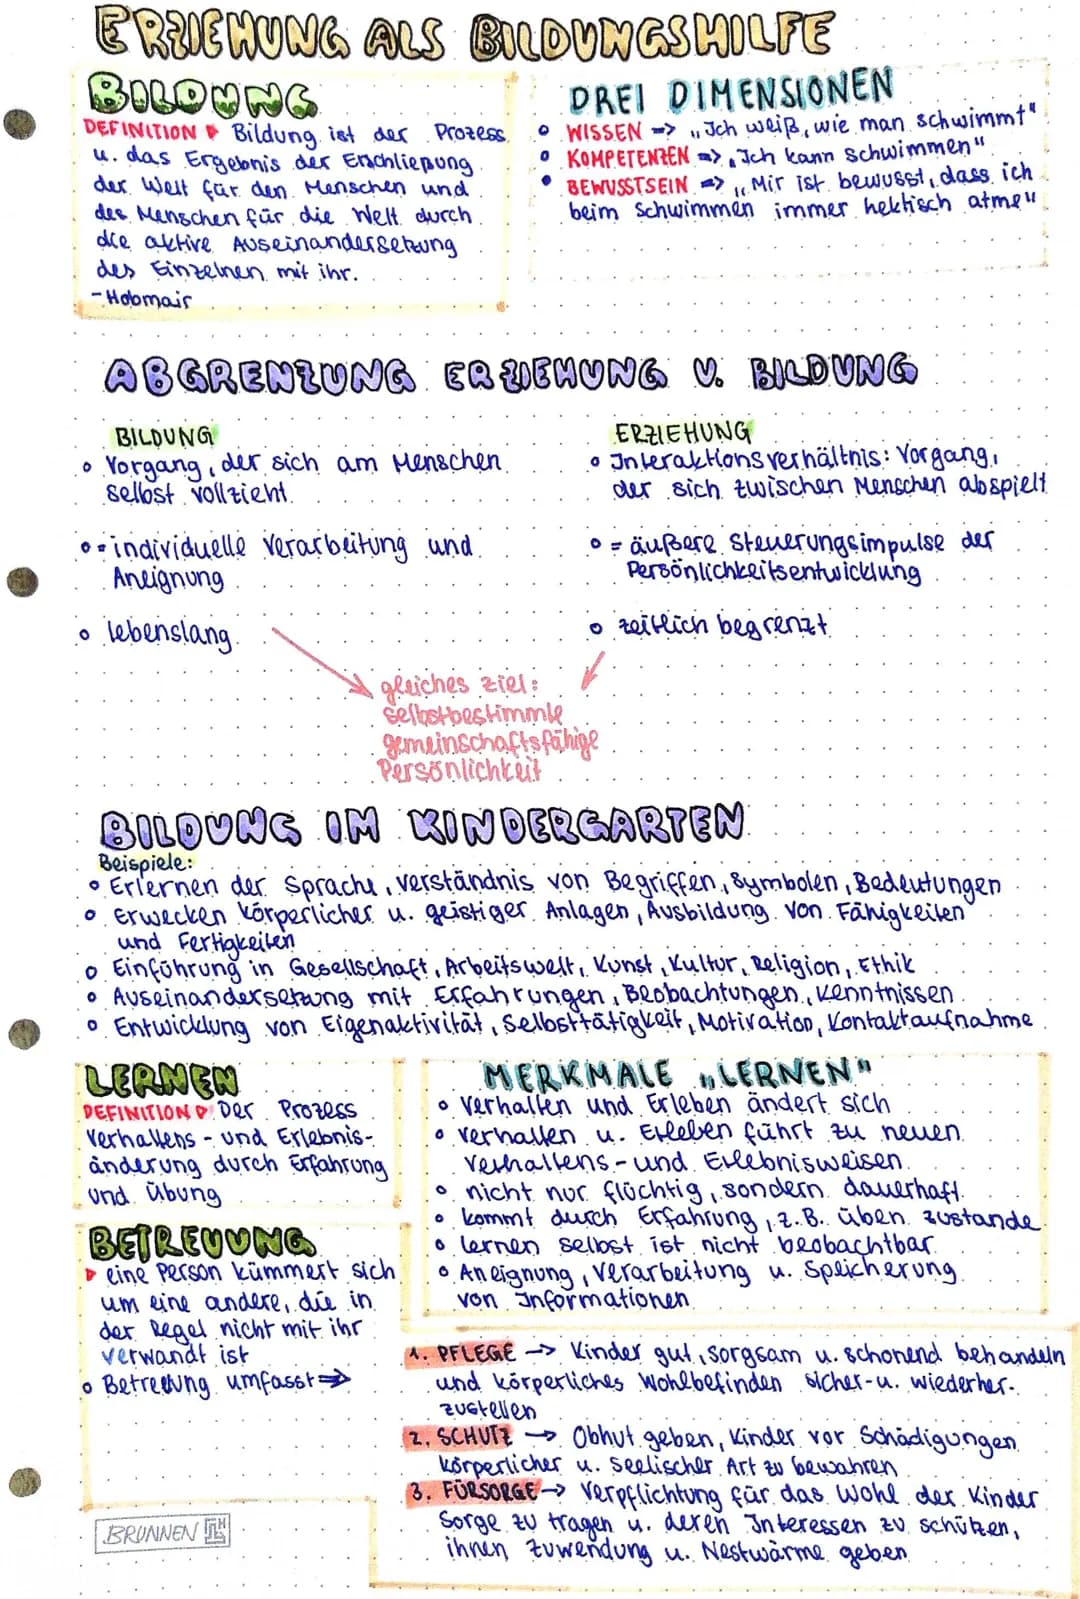 ERZIEHUNG ALS BILDUNGSHILFE
BILDUNG
DEFINITION Bildung ist der Prozess
u. das Ergebnis der Erschließung
der Welt für den Menschen und
des Menschen für die Welt durch
die aktive Auseinandersetzung
des Einzelnen mit ihr.
- Hobmair
DREI DIMENSIONEN
• WISSEN => „Ich weiß, wie man schwimmt"
• KOMPETENZEN => „Ich kann schwimmen"
• BEWUSSTSEIN => „Mir ist bewusst, dass ich
beim Schwimmen immer hektisch atme"
ABGRENZUNG ERZIEHUNG U. BILDUNG
BILDUNG
• Vorgang, der sich am Menschen
selbst vollzieht
• = individuelle Verarbeitung und
Aneignung
• lebenslang
ERZIEHUNG
• Interaktionsverhältnis: Vorgang,
der sich zwischen Menschen abspielt
• = äußere Steuerungsimpulse der
Persönlichkeitsentwicklung
• zeitlich begrenzt
gleiches Ziel:
selbstbestimmte
gemeinschaftsfähige
Persönlichkeit
BILDUNG IM KINDERGARTEN
Beispiele:
• Erlernen der Sprache, Verständnis von Begriffen, Symbolen, Bedeutungen
• Erwecken körperlicher u. geistiger Anlagen, Ausbildung von Fähigkeiten
und Fertigkeiten
• Einführung in Gesellschaft, Arbeitswelt, Kunst, Kultur, Religion, Ethik
• Auseinandersetzung mit Erfahrungen, Beobachtungen, Kenntnissen
• Entwicklung von Eigenaktivität, Selbsttätigkeit, Motivation, Kontaktaufnahme
LERNEN
DEFINITION Der Prozess
Verhaltens- und Erlebnis-
änderung durch Erfahrung
und Übung
MERKMALE „LERNEN"
• Verhalten und Erleben ändert sich
• Verhalten u. Erleben führt zu neuen
Verhaltens- und Erlebnisweisen
• nicht nur flüchtig, sondern dauerhaft
• kommt durch Erfahrung, z.B. üben zustande
• lernen selbst ist nicht beobachtbar
• Aneignung, Verarbeitung u. Speicherung
von Informationen
BETREUUNG
eine Person kümmert sich
um eine andere, die in
der Regel nicht mit ihr
verwandt ist
• Betreuung umfasst =>
1. PFLEGE -> Kinder gut, sorgsam u. schonend behandeln
und körperliches Wohlbefinden sicher- u. wiederher-
zustellen
2. SCHUTZ -> Obhut geben, Kinder vor Schädigungen
körperlicher u. seelischer Art zu bewahren
3. FÜRSORGE -> Verpflichtung für das Wohl der Kinder
Sorge zu tragen u. deren Interessen zu schützen,
ihnen Zuwendung u. Nestwärme geben
BRUNNEN